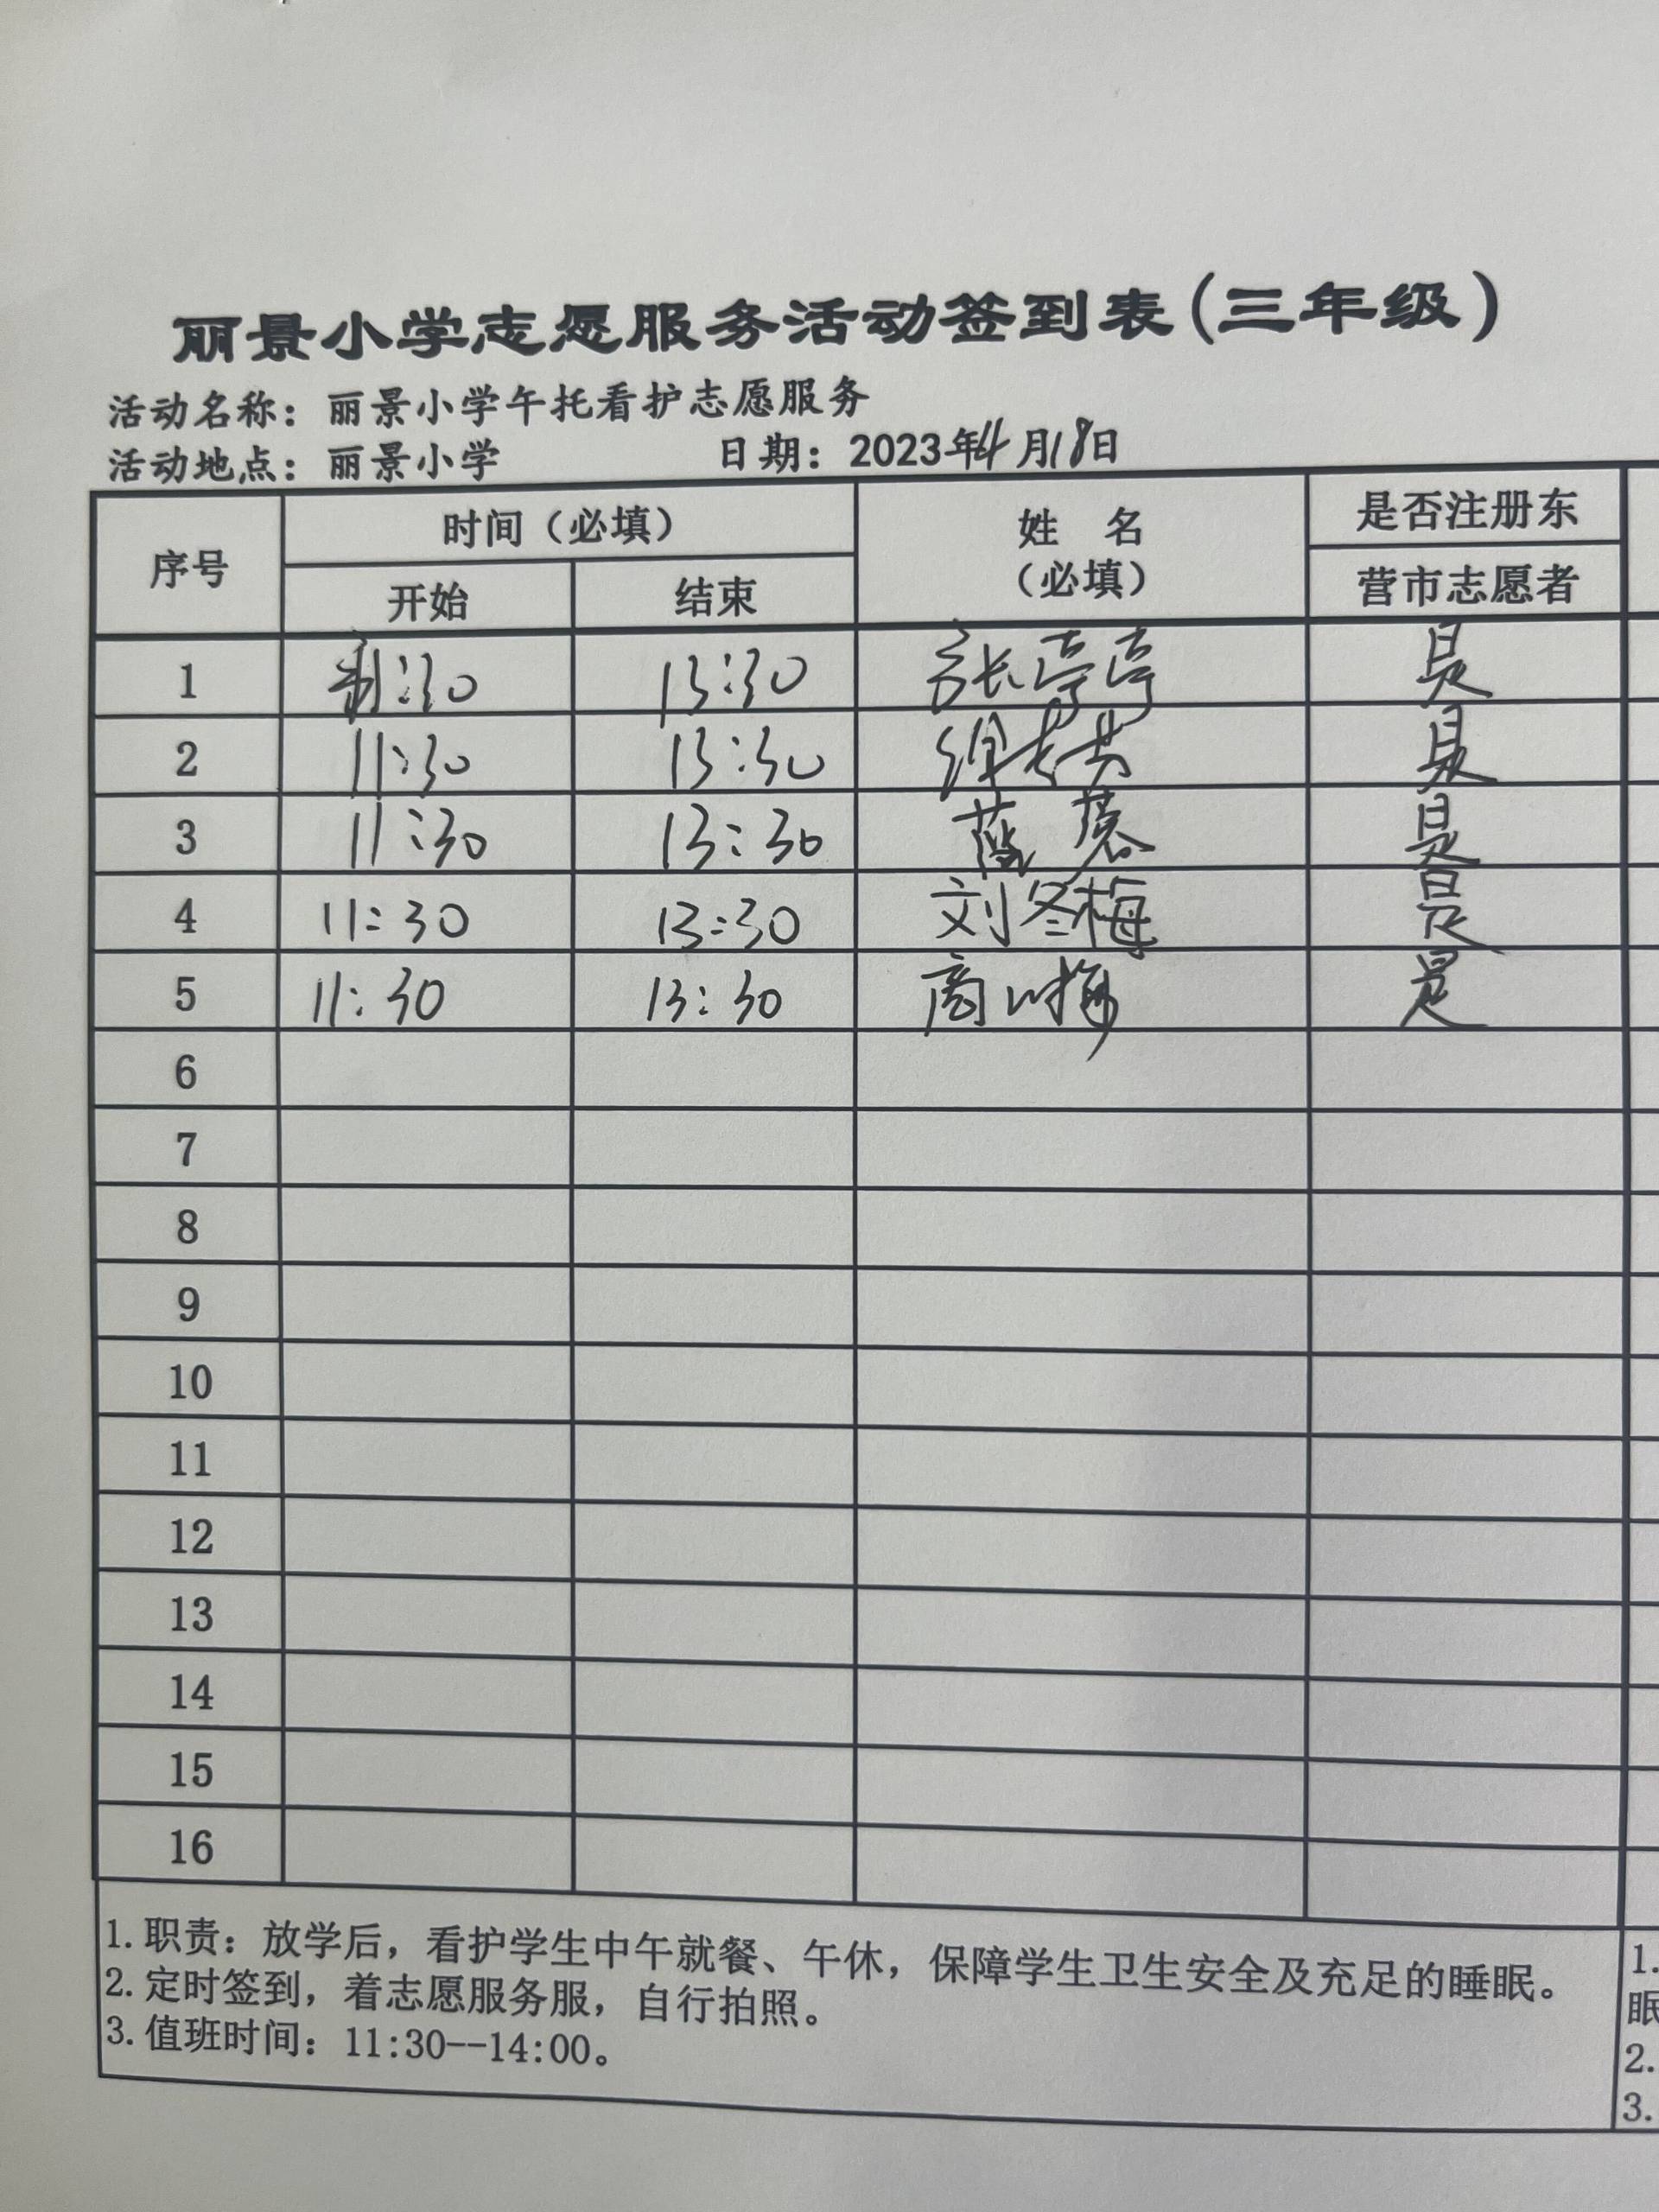 丽景小学志愿服务活动签到表(三年级)
活动名称：丽景小学午托看护志愿服务
活动地点：丽景小学 日期：2023年4月18日
序号 时间（必填） 姓 名（必填） 是否注册东营市志愿者
开始 结束
1 11:30 13:30 张亭亭 是
2 11:30 13:30 是
3 11:30 13:30 是
4 11:30 13:30 刘冬梅 是
5 11:30 13:30 商 梅 是
6
7
8
9
10
11
12
13
14
15
16
1.职责：放学后，看护学生中午就餐、午休，保障学生卫生安全及充足的睡眠。
2.定时签到，着志愿服务服，自行拍照。
3.值班时间：11:30--14:00。
1.
眠
2.
3.